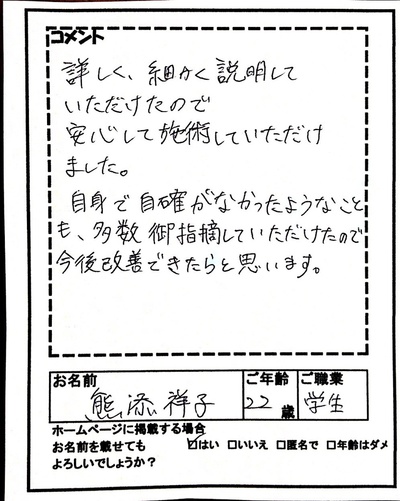 コメント
詳しく、細かく説明して
いただけたので
安心して施術していただけ
ました。
自身で自確がなかったようなこと
も、多数御指摘していただけたので
今後改善できたらと思います。
お名前 ご年齢 ご職業
熊添祥子 22歳 学生
ホームページに掲載する場合
お名前を載せても ☑はい □いいえ □匿名で □年齢はダメ
よろしいでしょうか？